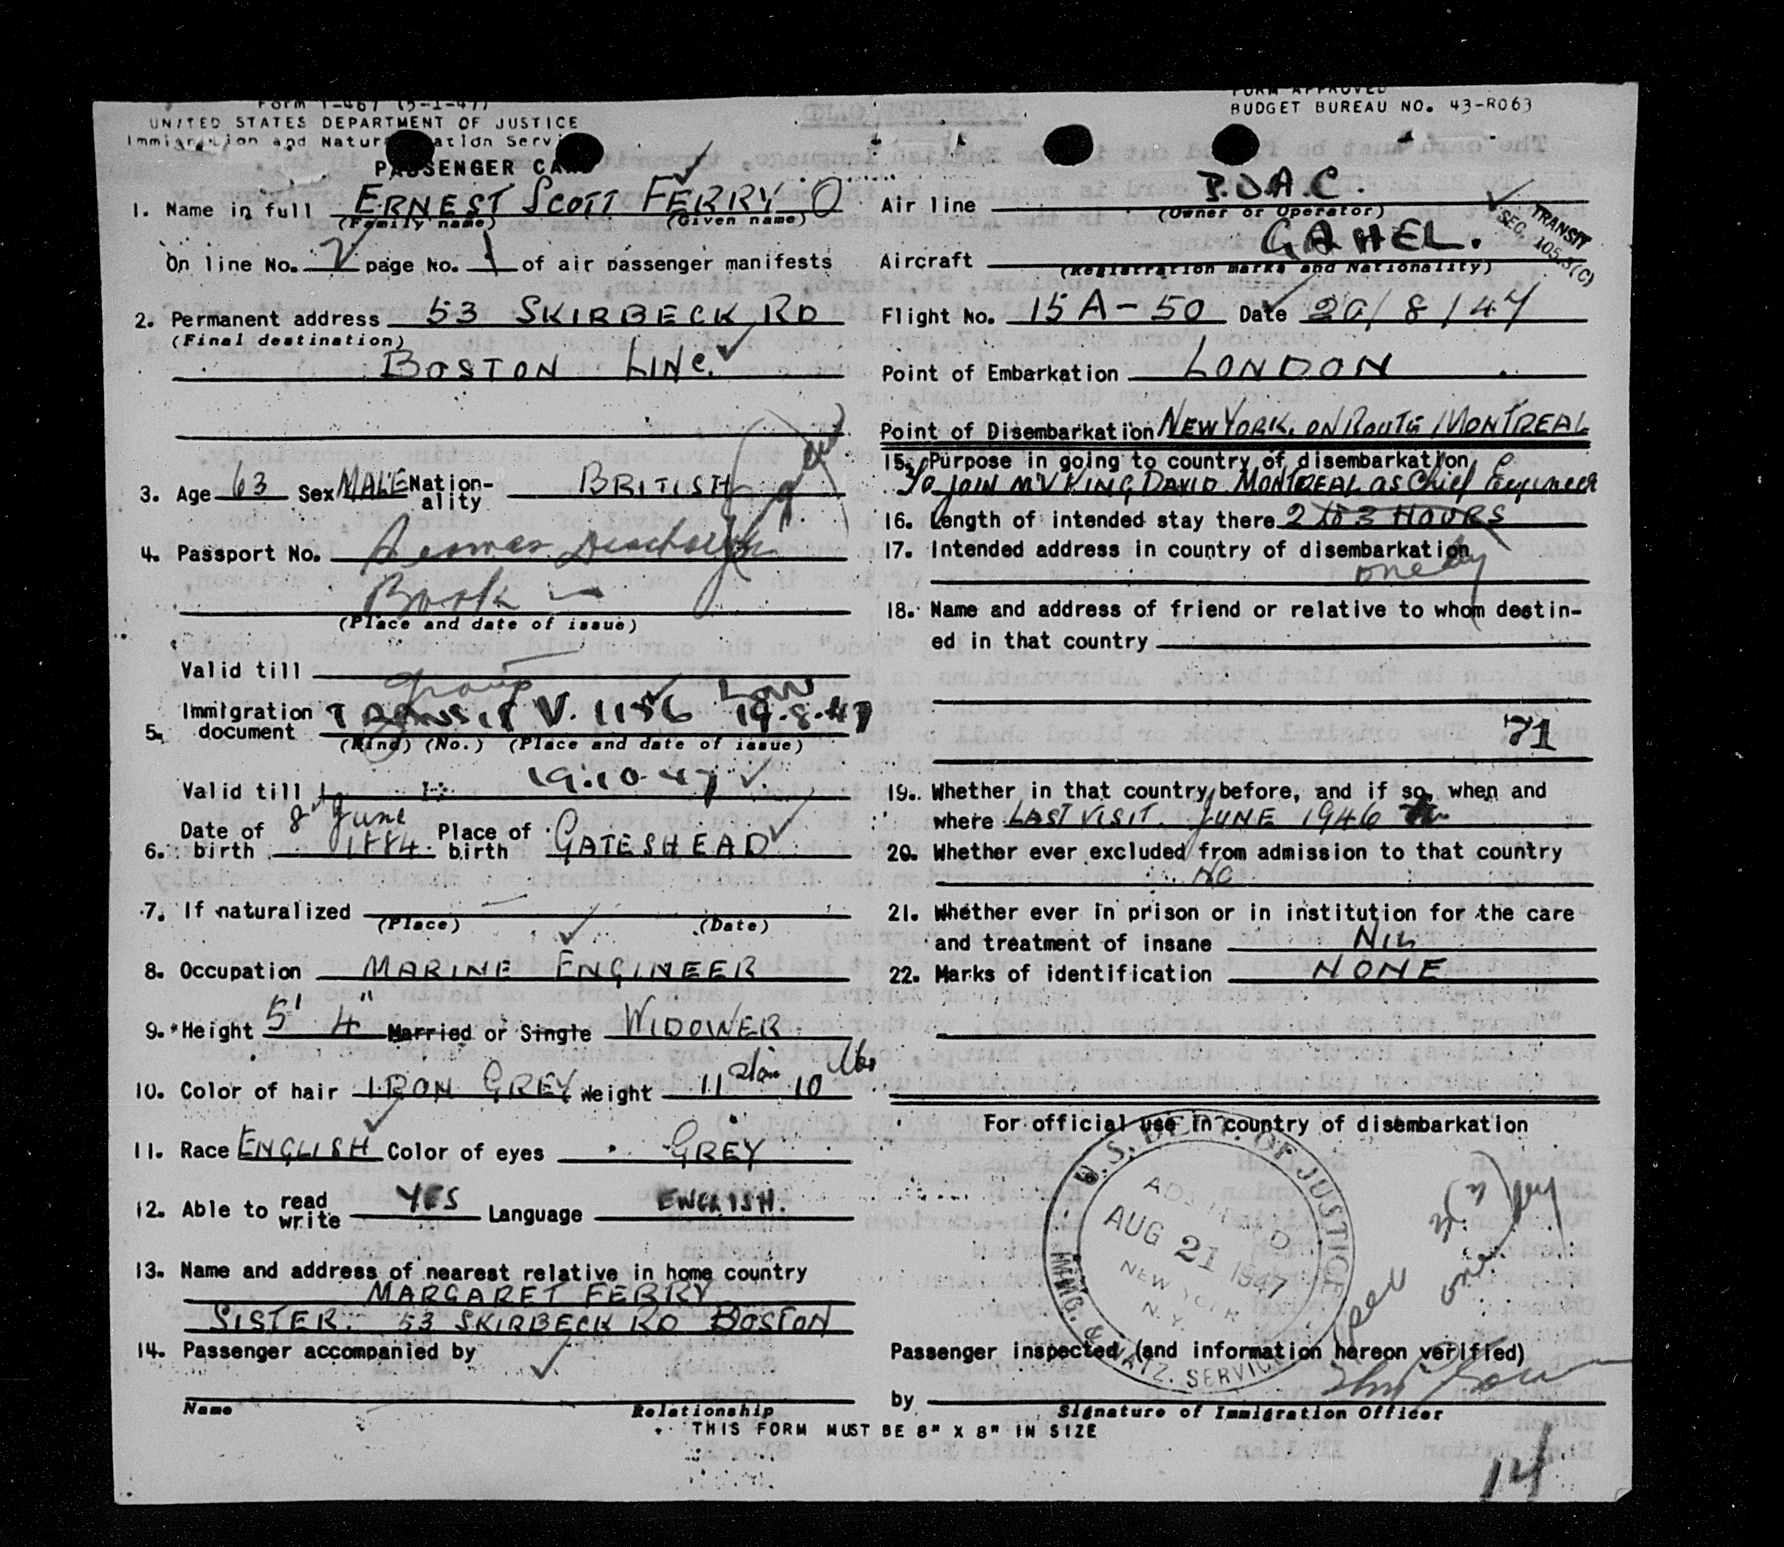 Form I-467 (5-1-47)
UNITED STATES DEPARTMENT OF JUSTICE
Immigration and Naturalization Service
PASSENGER CARD
FORM APPROVED
BUDGET BUREAU NO. 43-R063
1. Name in full ERNEST SCOTT FERRY
(Family name) (Given name)
On line No. 2 page No. 1 of air passenger manifests
2. Permanent address 53 SKIRBECK RD
(Final destination)
BOSTON LINC.
3. Age 63 Sex MALE Nation-ality BRITISH
4. Passport No. Seamans Discharge
Book
(Place and date of issue)
Valid till
group
5. Immigration document TRANSIT V. 1156 Lon 19.8.47
(Kind) (No.) (Place and date of issue)
Valid till 19.10.47
6. Date of birth 8th June 1884. Place of birth GATESHEAD
7. If naturalized
(Place) (Date)
8. Occupation MARINE ENGINEER
9. *Height 5' 4" Married or Single WIDOWER.
10. Color of hair IRON GREY Weight 11 ston 10 lbs
11. Race ENGLISH Color of eyes GREY
12. Able to read write YES Language ENGLISH.
13. Name and address of nearest relative in home country
MARGARET FERRY
SISTER. 53 SKIRBECK RD BOSTON
14. Passenger accompanied by
Name Relationship
Air line B.O.A.C.
(Owner or Operator)
TRANSIT
SEC. 105.3(C)
Aircraft GAHEL.
(Registration marks and Nationality)
Flight No. 15A-50 Date 20/8/47
Point of Embarkation LONDON
Point of Disembarkation NEW YORK, ON ROUTE MONTREAL
15. Purpose in going to country of disembarkation
To JOIN MV KING DAVID MONTREAL as Chief Engineer
16. Length of intended stay there 2 to 3 HOURS
17. Intended address in country of disembarkation
one day
18. Name and address of friend or relative to whom destin-
ed in that country
71
19. Whether in that country before, and if so, when and
where LAST VISIT. JUNE 1946
20. Whether ever excluded from admission to that country
NO
21. Whether ever in prison or in institution for the care
and treatment of insane NIL
22. Marks of identification NONE
For official use in country of disembarkation
U.S. DEPT. OF JUSTICE
ADMITTED
AUG 21 1947
NEW YORK
N.Y.
IMMG. & NATZ. SERVICE
one day
Passenger inspected (and information hereon verified)
by
Signature of Immigration Officer
* THIS FORM MUST BE 8" X 8" IN SIZE
14